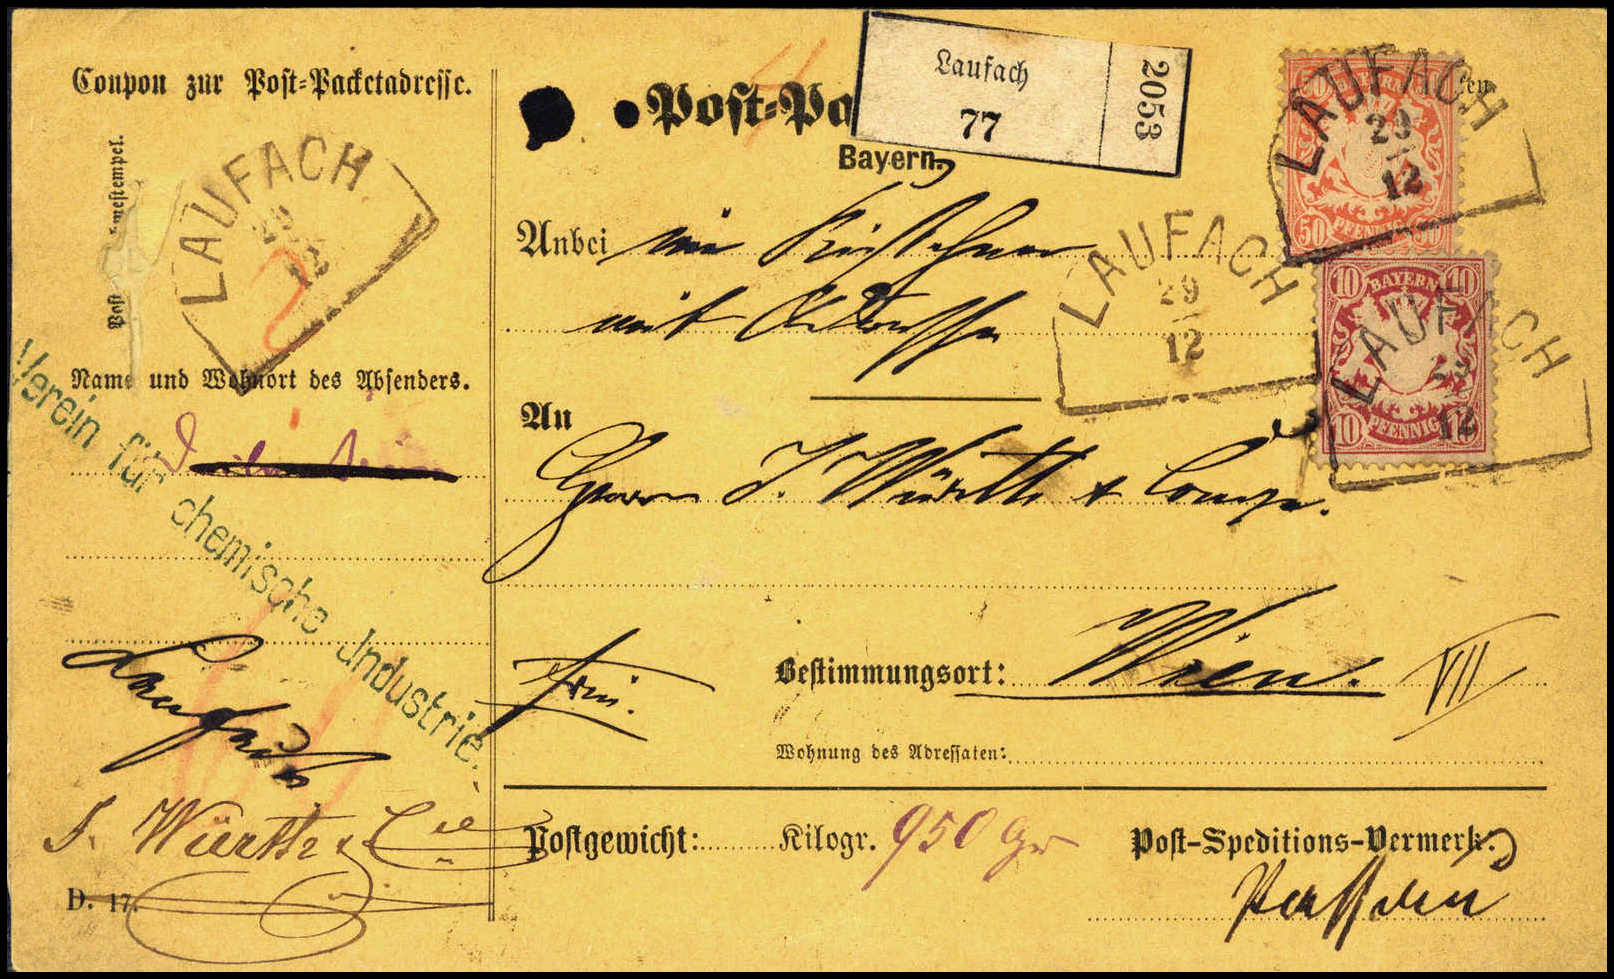 Coupon zur Post-Packetadresse.
LAUFACH
12
Name und Wohnort des Absenders.
Verein für chemische Industrie.
Laufach
J. Würth & Cie
D. 17.
Post-Pa
Bayern.
Laufach
77
2053
Anbei
mit Adresse
An
Herrn J. Würth & Comp.
Bestimmungsort: Wien. VII
frei.
Wohnung des Adressaten:
Postgewicht: Kilogr. 950 Gr
Post-Speditions-Vermerk:
Passau
BAYERN
50 PFENNIG 50
LAUFACH
29
12
LAUFACH
29
12
10 BAYERN 10
10 PFENNIG 10
LAUFACH
12